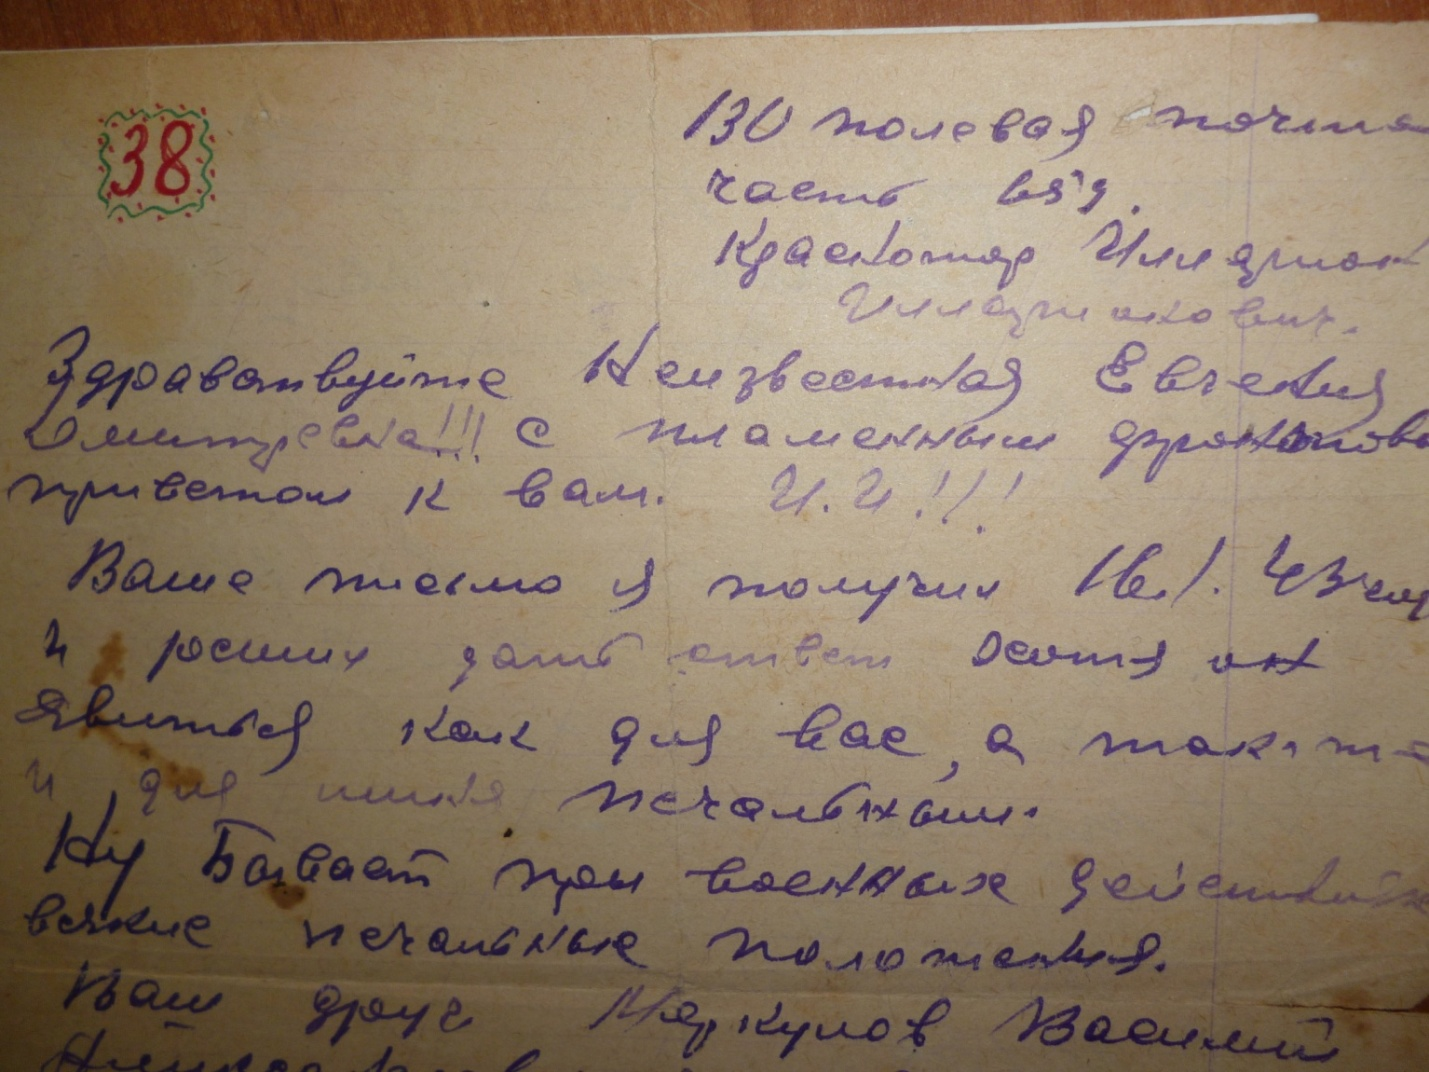 38
130 полевая почта
часть
Красножар Илларион
Илларионович.
Здравствуйте Неизвестная Евгения
Дмитревна!!! с пламенным фронтовы
приветом к вам. И.И!!!
Ваше письмо я получил 16.1.43
и решил дать ответ хотя он
явиться как для вас, а так-же
и для меня печальным.
Ну Бывает при военных действиях
всякие печальные положения.
Ваш друг Меркулов Василий